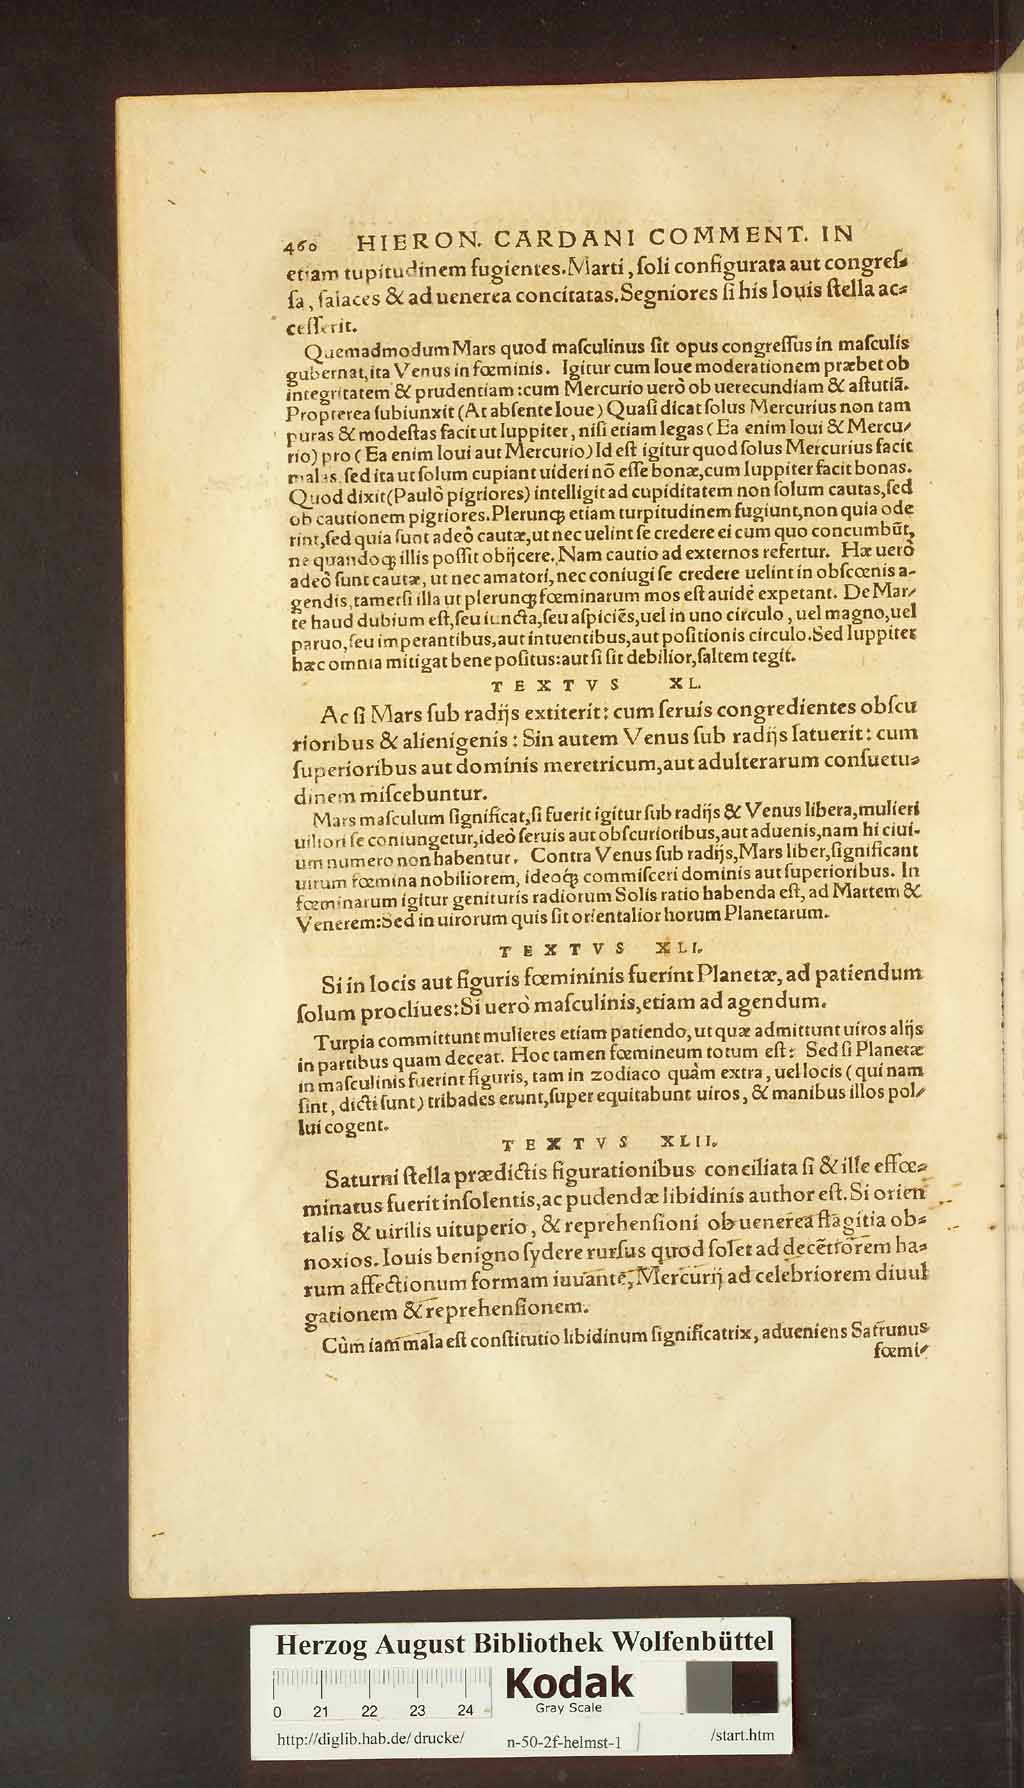 460 HIERON. CARDANI COMMENT. IN
etiam tupitudinem fugientes. Marti, ſoli configurata aut congreſ⸗
ſa, ſalaces & ad uenerea concitatas. Segniores ſi his Iouis ſtella ac⸗
ceſſerit.
Quemadmodum Mars quod maſculinus ſit opus congreſſus in maſculis
gubernat, ita Venus in fœminis. Igitur cum Ioue moderationem præbet ob
integritatem & prudentiam: cum Mercurio uerò ob uerecundiam & aſtutiã.
Propterea ſubiunxit (At abſente Ioue) Quaſi dicat ſolus Mercurius non tam
puras & modeſtas facit ut Iuppiter, niſi etiam legas (Ea enim Ioui & Mercu⸗
rio) pro (Ea enim Ioui aut Mercurio) Id eſt igitur quod ſolus Mercurius facit
malas, ſed ita ut ſolum cupiant uideri nõ eſſe bonæ, cum Iuppiter facit bonas.
Quod dixit (Paulò pigriores) intelligit ad cupiditatem non ſolum cautas, ſed
ob cautionem pigriores. Plerunqꝫ etiam turpitudinem fugiunt, non quia ode
rint, ſed quia ſunt adeò cautæ, ut nec uelint ſe credere ei cum quo concumbũt,
ne quandoqꝫ illis poſſit obijcere. Nam cautio ad externos refertur. Hæ uerò
adeò ſunt cautæ, ut nec amatori, nec coniugi ſe credere uelint in obſcœnis a-
gendis, tametſi illa ut plerunqꝫ fœminarum mos eſt auidè expetant. De Mar⸗
te haud dubium eſt, ſeu iuncta, ſeu aſpiciẽs, uel in uno circulo, uel magno, uel
paruo, ſeu imperantibus, aut intuentibus, aut poſitionis circulo. Sed Iuppiter
hæc omnia mitigat bene poſitus: aut ſi ſit debilior, ſaltem tegit.
TEXTVS XL.
Ac ſi Mars ſub radijs extiterit: cum ſeruis congredientes obſcu
rioribus & alienigenis: Sin autem Venus ſub radijs latuerit: cum
ſuperioribus aut dominis meretricum, aut adulterarum conſuetu⸗
dinem miſcebuntur.
Mars maſculum ſignificat, ſi fuerit igitur ſub radijs & Venus libera, mulieri
uiliori ſe coniungetur, ideò ſeruis aut obſcurioribus, aut aduenis, nam hi ciui-
um numero non habentur. Contra Venus ſub radijs, Mars liber, ſignificant
uirum fœmina nobiliorem, ideoqꝫ commiſceri dominis aut ſuperioribus. In
fœminarum igitur genituris radiorum Solis ratio habenda eſt, ad Martem &
Venerem: Sed in uirorum quis ſit orientalior horum Planetarum.
TEXTVS XLI.
Si in locis aut figuris fœmininis fuerint Planetæ, ad patiendum
ſolum procliues: Si uerò maſculinis, etiam ad agendum.
Turpia committunt mulieres etiam patiendo, ut quæ admittunt uiros alijs
in partibus quam deceat. Hoc tamen fœmineum totum eſt: Sed ſi Planetæ
in maſculinis fuerint figuris, tam in zodiaco quàm extra, uel locis (qui nam
ſint, dicti ſunt) tribades erunt, ſuper equitabunt uiros, & manibus illos pol⸗
lui cogent.
TEXTVS XLII.
Saturni ſtella prædictis figurationibus conciliata ſi & ille effœ⸗
minatus fuerit inſolentis, ac pudendæ libidinis author eſt. Si orien
talis & uirilis uituperio, & reprehenſioni ob uenerea flagitia ob⸗
noxios. Iouis benigno ſydere rurſus quod ſolet ad decẽtiorem ha⸗
rum affectionum formam iuuante, Mercurij ad celebriorem diuul
gationem & reprehenſionem.
Cùm iam mala eſt conſtitutio libidinum ſignificatrix, adueniens Satrunus
fœmi⸗
Herzog August Bibliothek Wolfenbüttel
Kodak
Gray Scale
0 21 22 23 24
http://diglib.hab.de/drucke/ n-50-2f-helmst-1 /start.htm